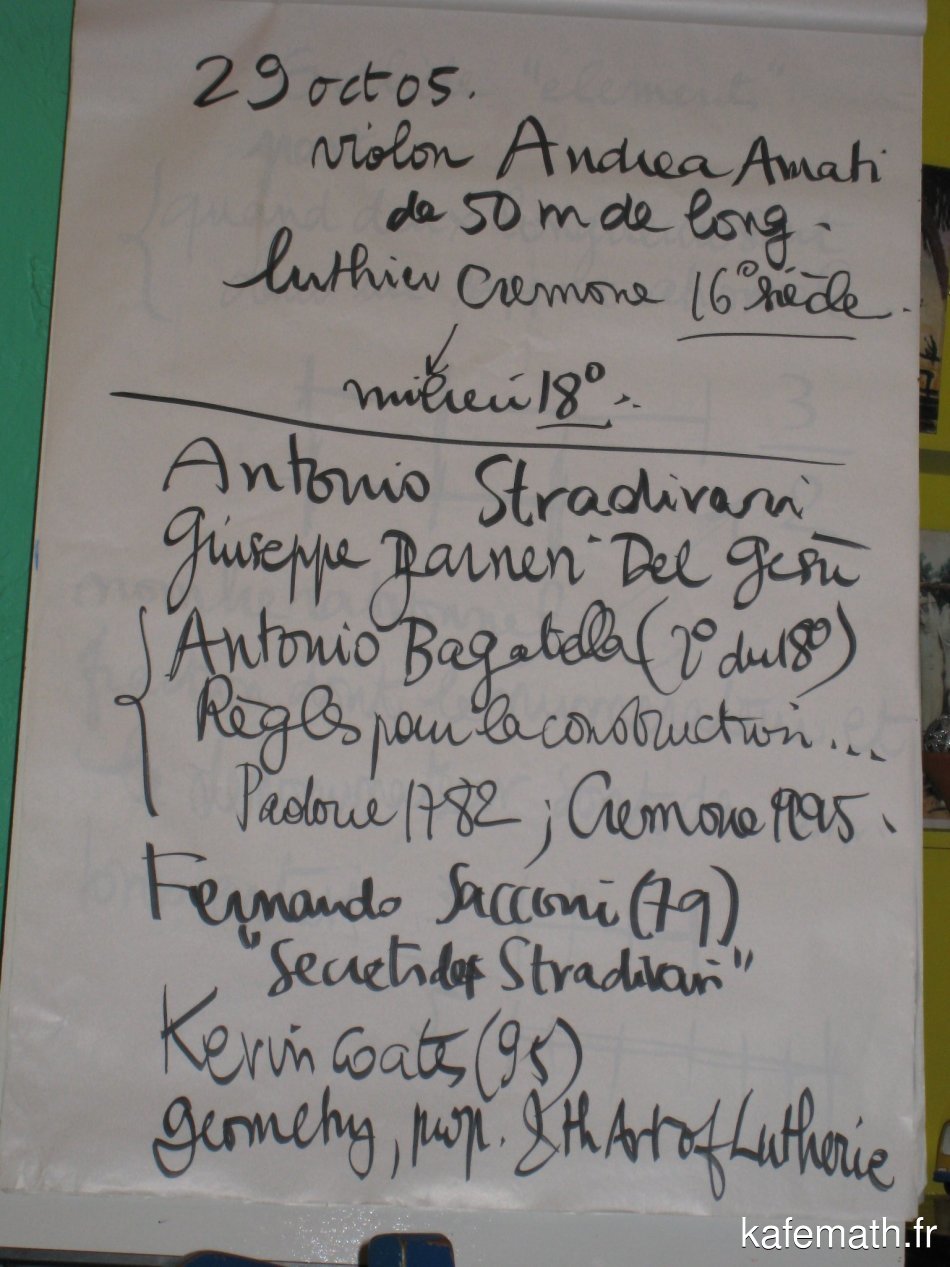 29 oct 05.
violon Andrea Amati
de 50 m de long.
luthier Cremone 16° siècle.
milieu 18°..
Antonio Stradivari
Giuseppe Garneri Del Gesù
Antonio Bagatella (2° du 18°)
Règles pour la construction...
Padoue 1782 ; Cremone 1995.
Fernando Sacconi (79)
"Secrets de Stradivari"
Kevin Coates (95)
geometry, prop. & th Art of Lutherie
kafemath.fr